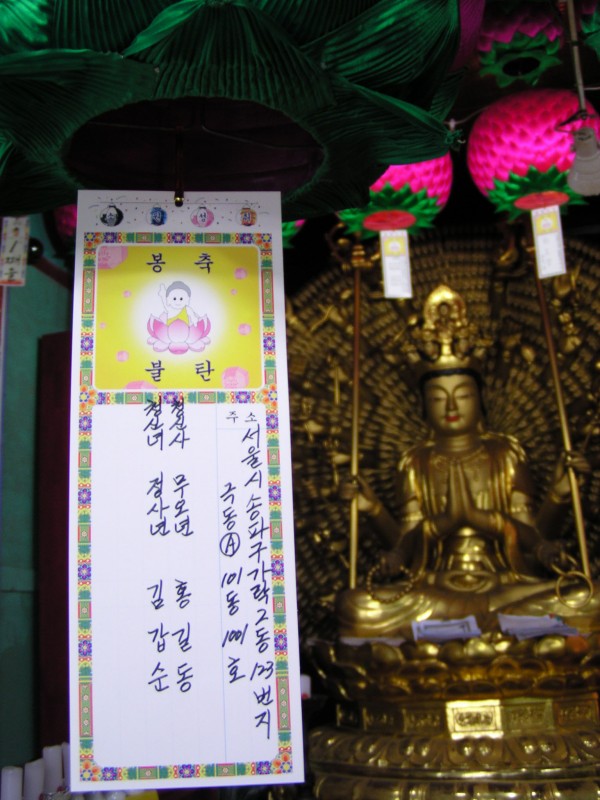 봉 축
불 탄
주 소
서울시 송파구 가락2동 123번지
극동Ⓐ 101동 1001호
청신사 무오년 홍길동
청신녀 정사년 김갑순